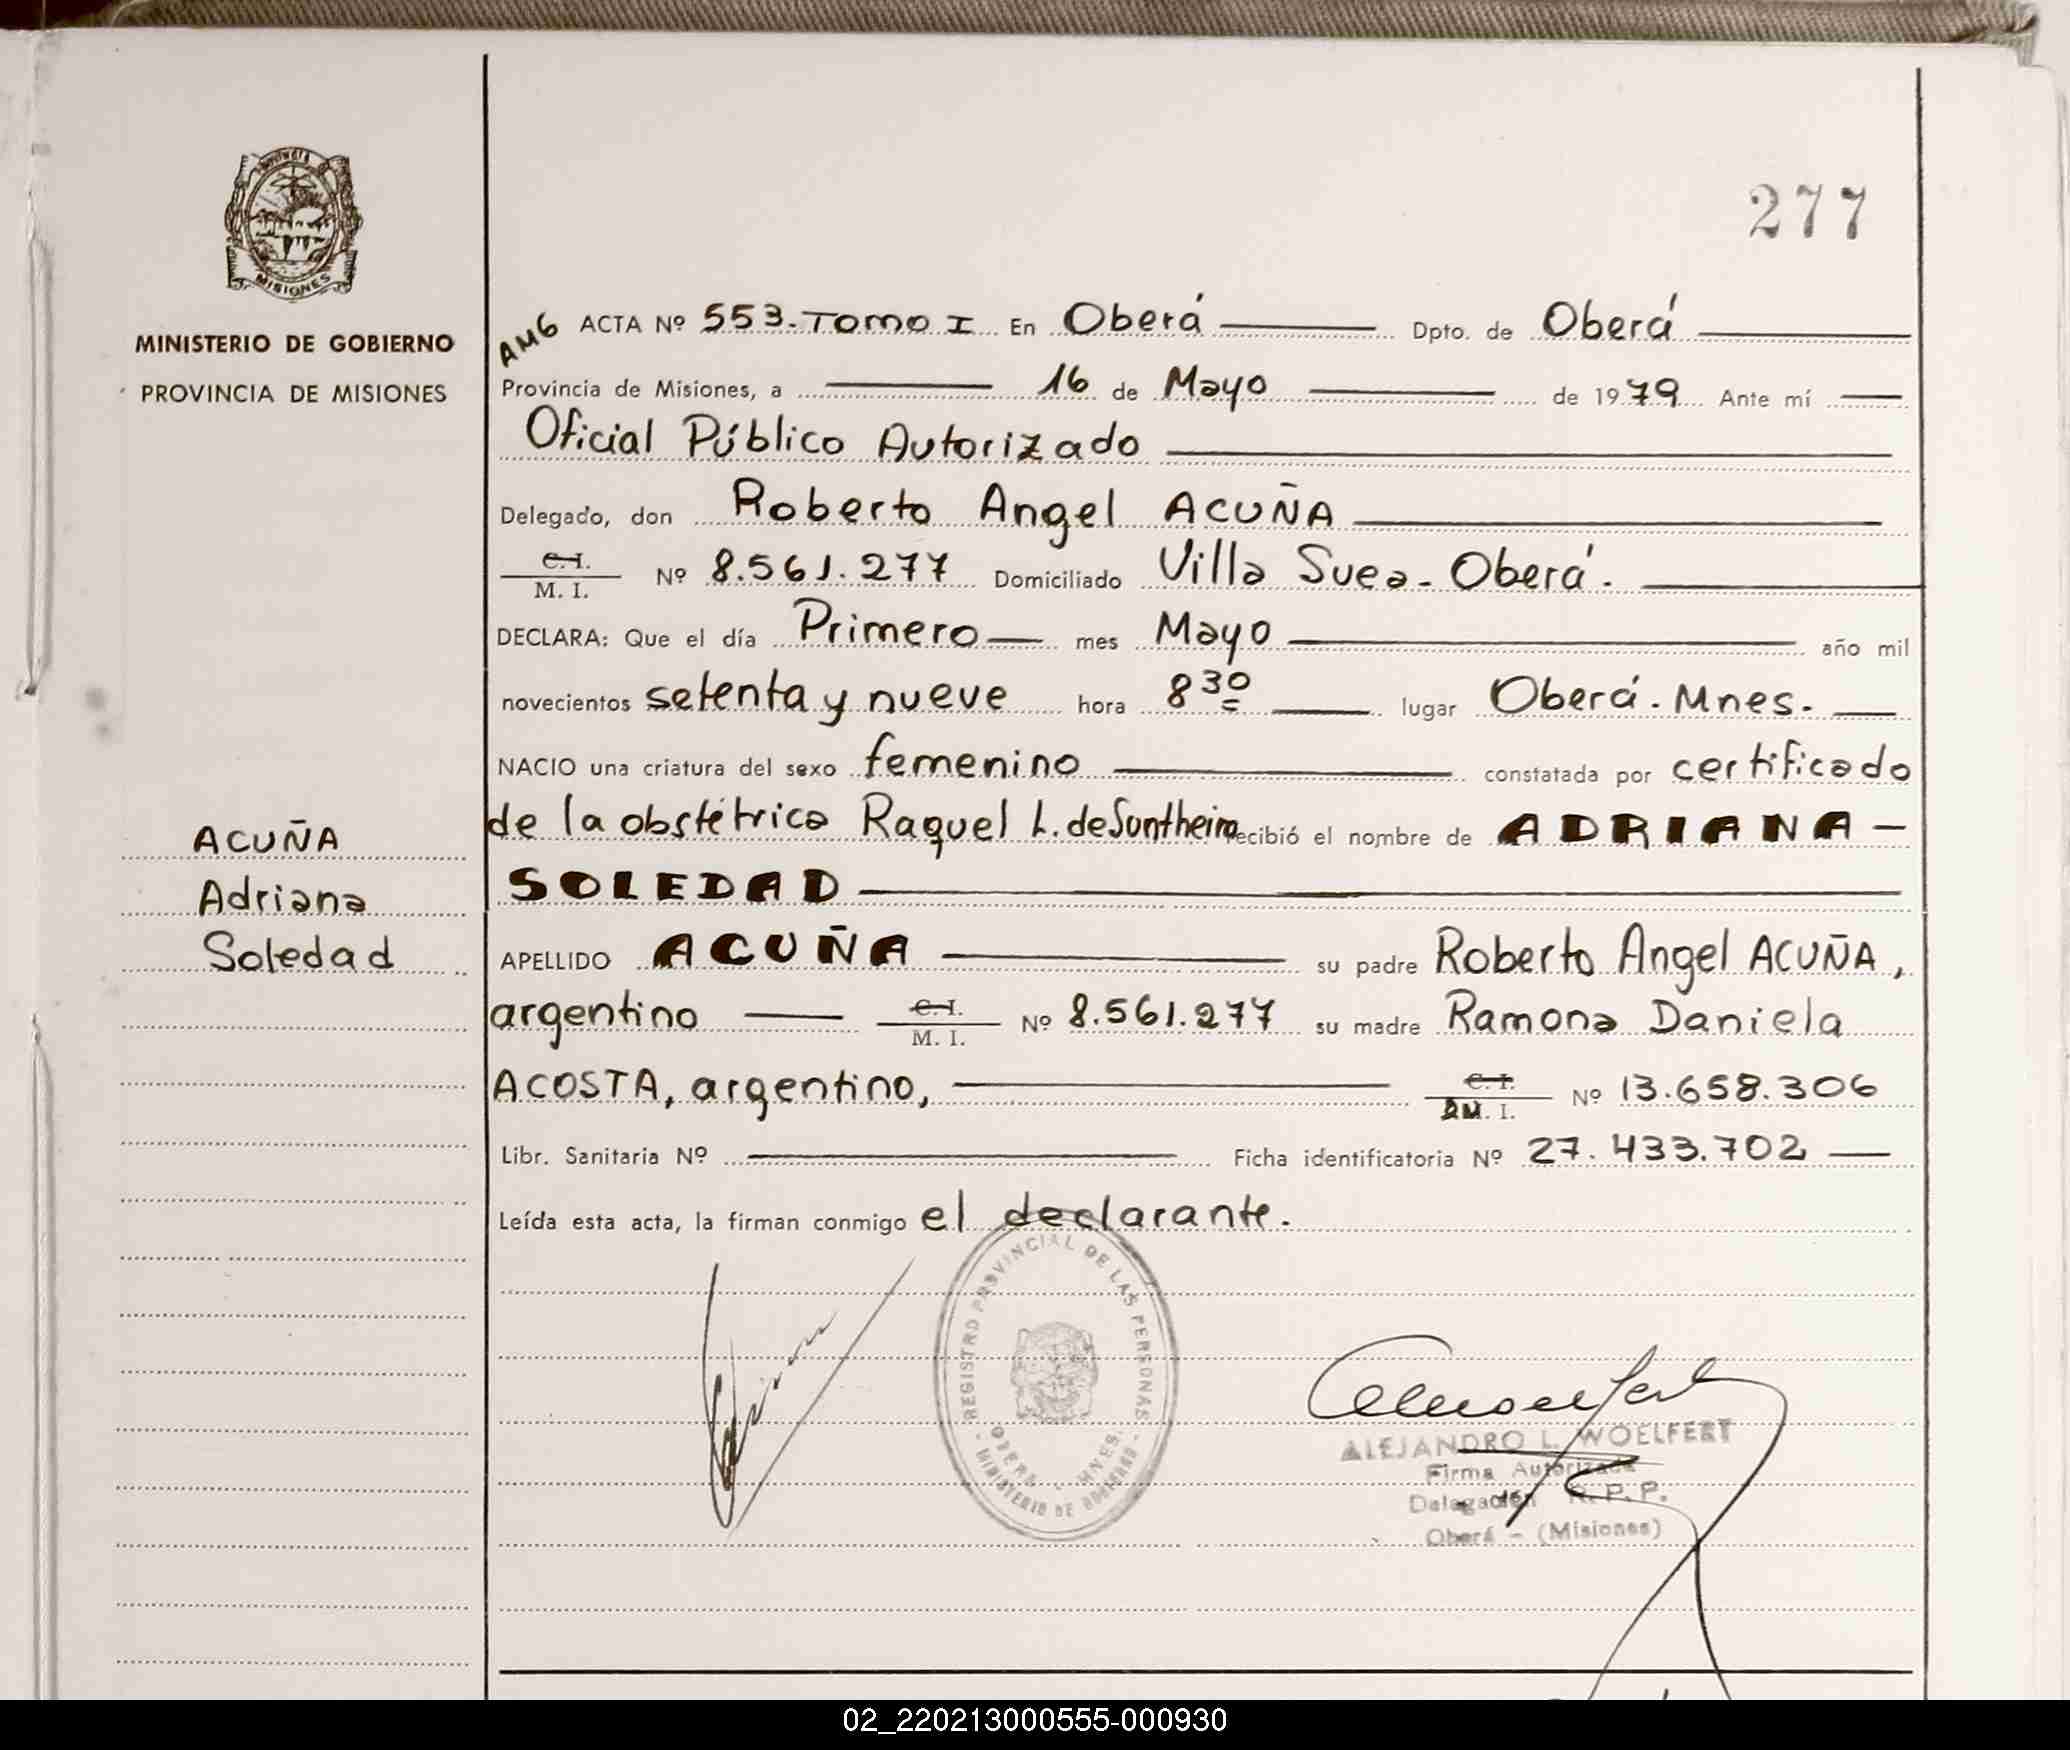 277
MISIONES
MINISTERIO DE GOBIERNO
PROVINCIA DE MISIONES
AMG ACTA Nº 553. Tomo I En Oberá Dpto. de Oberá
Provincia de Misiones, a 16 de Mayo de 1979 Ante mí
Oficial Público Autorizado
Delegado, don Roberto Angel ACUÑA
C. I.
M. I. Nº 8.561.277 Domiciliado Villa Suea - Oberá.
DECLARA: Que el día Primero mes Mayo año mil
novecientos setenta y nueve hora 8 30 lugar Oberá. Mnes.
NACIO una criatura del sexo femenino constatada por certificado
de la obstétrica Raquel L. de Suntheim recibió el nombre de ADRIANA -
SOLEDAD
APELLIDO ACUÑA su padre Roberto Angel ACUÑA,
argentino C. I.
M. I. Nº 8.561.277 su madre Ramona Daniela
ACOSTA, argentino, C. I.
M. I. Nº 13.658.306
Libr. Sanitaria Nº Ficha identificatoria Nº 27.433.702
Leída esta acta, la firman conmigo el declarante.
ACUÑA
Adriana
Soledad
REGISTRO PROVINCIAL DE LAS PERSONAS
OBERA - MNES.
- MINISTERIO DE GOBIERNO -
ALEJANDRO L. WOELFERT
Firma Autorizada
Delegación R. P. P.
Oberá - (Misiones)
02_220213000555-000930